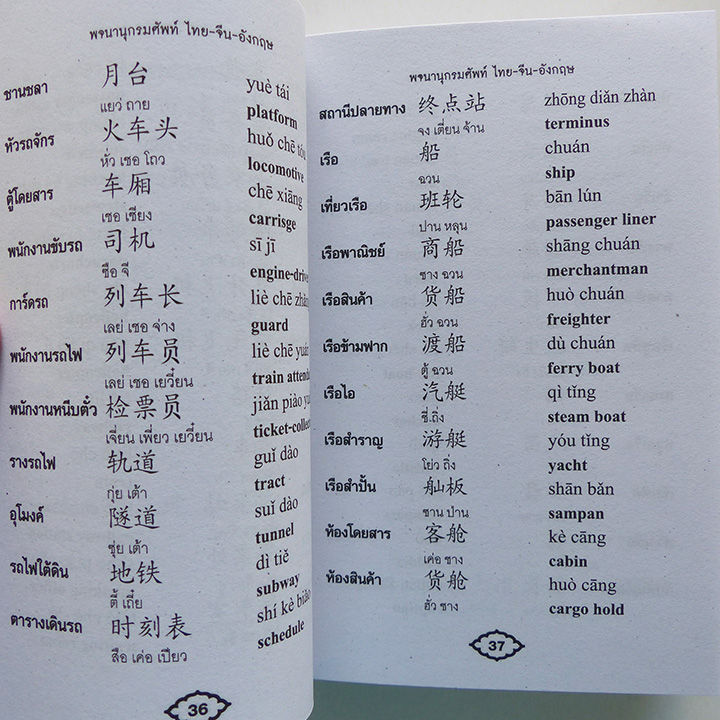 พจนานุกรมศัพท์ ไทย-จีน-อังกฤษ
ชานชลา 月台 yuè tái
แยว่ ถาย platform
หัวรถจักร 火车头 huǒ chē
หั่ว เชอ โถว locomotive
ตู้โดยสาร 车厢 chē xiāng
เชอ เซียง carrisge
พนักงานขับรถ 司机 sī jī
ซือ จี engine-drive
การ์ดรถ 列车长 liè chē
เลย่ เชอ จ่าง guard
พนักงานรถไฟ 列车员 liè chē yuán
เลย่ เชอ เยวี๋ยน train
พนักงานหนีบตั๋ว 检票员 jiǎn piào
เจี่ยน เพี่ยว เยวี๋ยน ticket-collec
รางรถไฟ 轨道 guǐ dào
กุ่ย เต้า tract
อุโมงค์ 隧道 suǐ dào
ซุ่ย เต้า tunnel
รถไฟใต้ดิน 地铁 dì tiě
ตี้ เถี่ย subway
ตารางเดินรถ 时刻表 shí kè biǎo
สือ เค่อ เปี่ยว schedule
36
พจนานุกรมศัพท์ ไทย-จีน-อังกฤษ
สถานีปลายทาง 终点站 zhōng diǎn zhàn
จง เตี่ยน จ้าน terminus
เรือ 船 chuán
ฉวน ship
เที่ยวเรือ 班轮 bān lún
ปาน หลุน passenger liner
เรือพาณิชย์ 商船 shāng chuán
ซาง ฉวน merchantman
เรือสินค้า 货船 huò chuán
ฮั่ว ฉวน freighter
เรือข้ามฟาก 渡船 dù chuán
ตู้ ฉวน ferry boat
เรือไอ 汽艇 qì tǐng
ชี่.ถิ่ง steam boat
เรือสำราญ 游艇 yóu tǐng
โย่ว ถิ่ง yacht
เรือสำปั้น 舢板 shān bǎn
ซาน ปาน sampan
ห้องโดยสาร 客舱 kè cāng
เค่อ ชาง cabin
ห้องสินค้า 货舱 huò cāng
ฮั่ว ชาง cargo hold
37